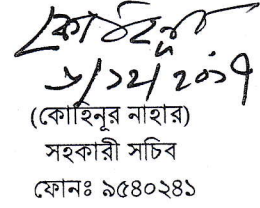 ৮/১২/২০১৭
(কোহিনূর নাহার)
সহকারী সচিব
ফোনঃ ৯৫৪০২৪১